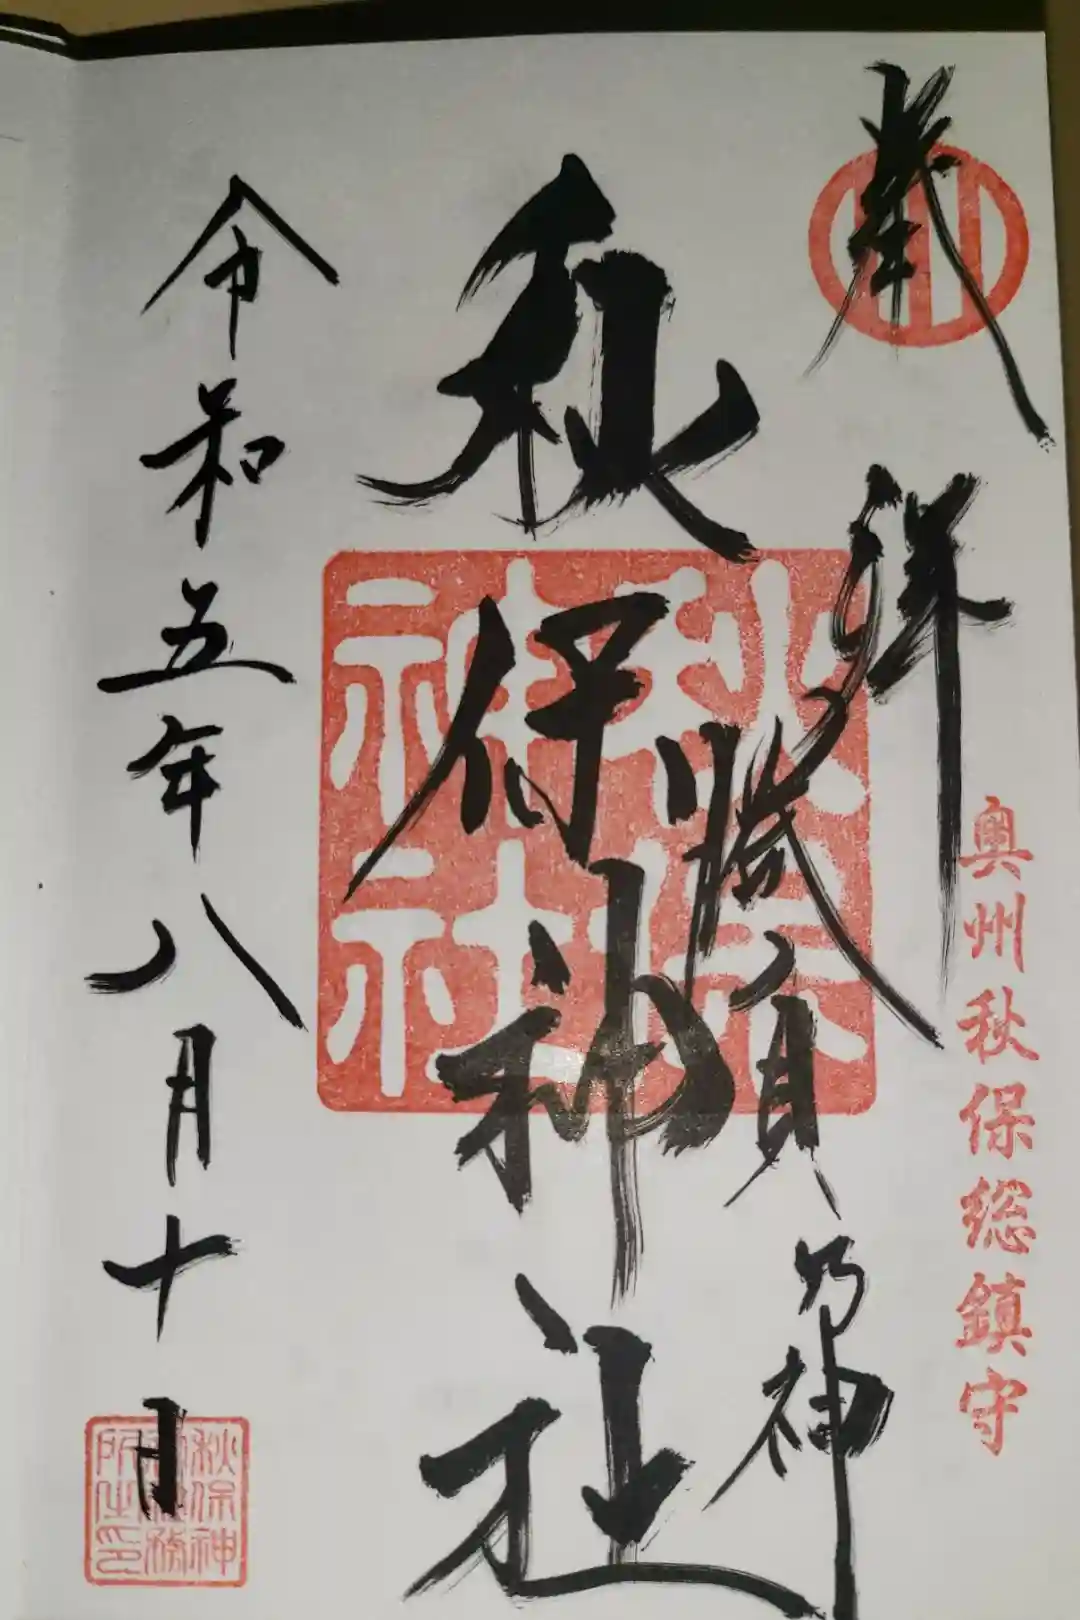 奉拝
奥州秋保総鎮守
勝負乃神
秋保神社
秋保神社
令和五年八月十日
秋保神社務所之印